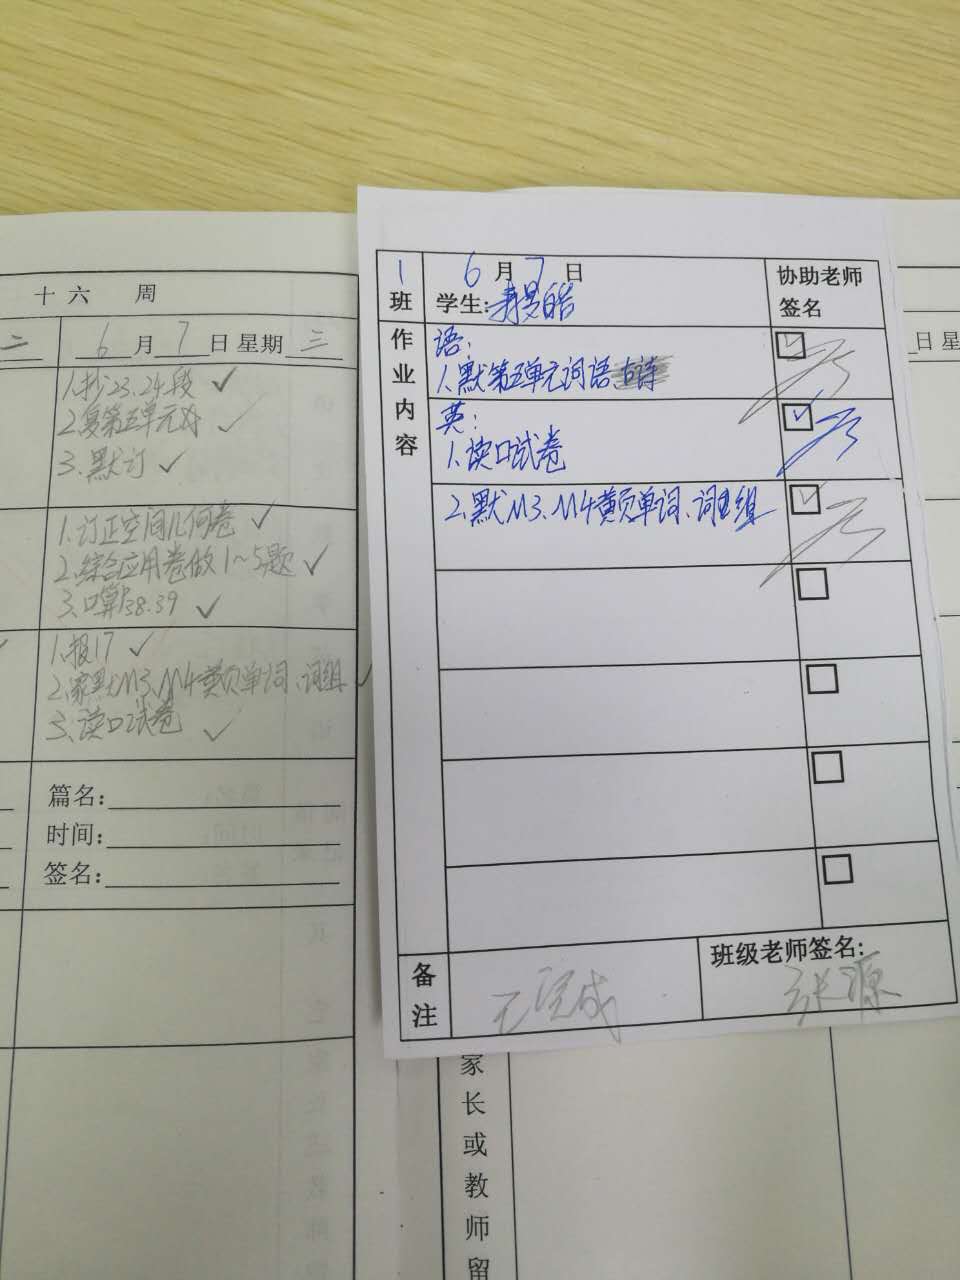 十六 周
二
6月7日 星期三
1.抄23.24段
2.复第五单元
3.默订
1.订正空间几何卷
2.综合应用卷做1~5题
3.口算P38.39
1.报17
2.家默M3、M4黄页单词、词组
3.读口试卷
篇名:
时间:
签名:
1班
6月7日
学生:
协助老师签名
作业内容
语:
1.默第五单元词语
英:
1.读口试卷
2.默M3、M4黄页单词、词组
备注
已完成
班级老师签名:
张源
日 星
家长或教师留